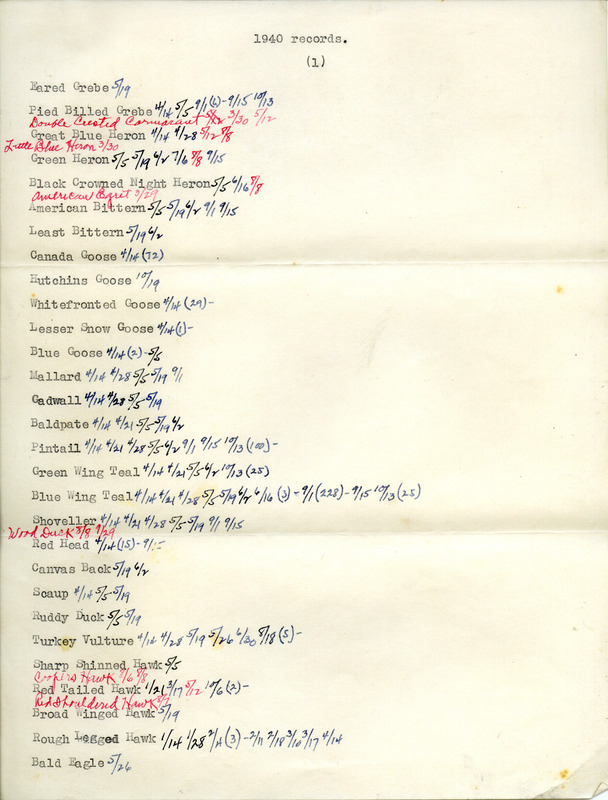 1940 records.
(1)
Eared Grebe 5/19
Pied Billed Grebe 4/14 5/5 9/1(6)- 9/15 10/13
Double Crested Cormorant 3/30 5/12
Great Blue Heron 4/14 4/28 5/12 9/8
Little Blue Heron 3/30
Green Heron 5/5 5/19 6/2 7/6 9/8 9/15
Black Crowned Night Heron 5/5 6/16 9/8
American Egret 3/29
American Bittern 5/5 5/19 6/2 9/1 9/15
Least Bittern 5/19 6/2
Canada Goose 4/14 (72)
Hutchins Goose 10/19
Whitefronted Goose 4/14 (29)-
Lesser Snow Goose 4/14 (1)-
Blue Goose 4/14 (2)-5/5
Mallard 4/14 4/28 5/5 5/19 9/1
Gadwall 4/14 4/28 5/5 5/19
Baldpate 4/14 4/21 5/5 5/19 6/2
Pintail 4/14 4/21 4/28 5/5 6/2 9/1 9/15 10/13 (100)-
Green Wing Teal 4/14 4/21 5/5 6/2 10/13 (25)
Blue Wing Teal 4/14 4/21 4/28 5/5 5/19 6/2 6/16 (3)- 9/1 (228)- 9/15 10/13 (25)
Shoveller 4/14 4/21 4/28 5/5 5/19 9/1 9/15
Wood Duck 9/29
Red Head 4/14 (15)- 9/15
Canvas Back 5/19 6/2
Scaup 4/14 5/5 5/19
Ruddy Duck 5/5 5/19
Turkey Vulture 4/14 4/28 5/19 5/26 6/30 8/18 (5)-
Sharp Shinned Hawk 5/5
Coopers Hawk 9/8
Red Tailed Hawk 1/21 3/17 5/12 10/6 (2)-
Red Shouldered Hawk
Broad Winged Hawk 5/19
Rough Legged Hawk 1/14 1/28 2/4 (3)- 2/11 2/18 3/10 3/17 4/14
Bald Eagle 5/26